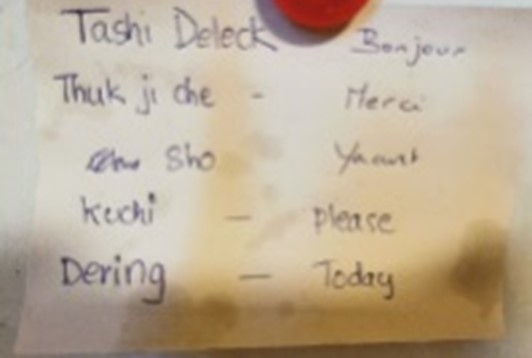 Tashi Deleck Bonjour
Thuk ji che - Merci
Sho Yaourt
Kuchi — please
Dering — Today